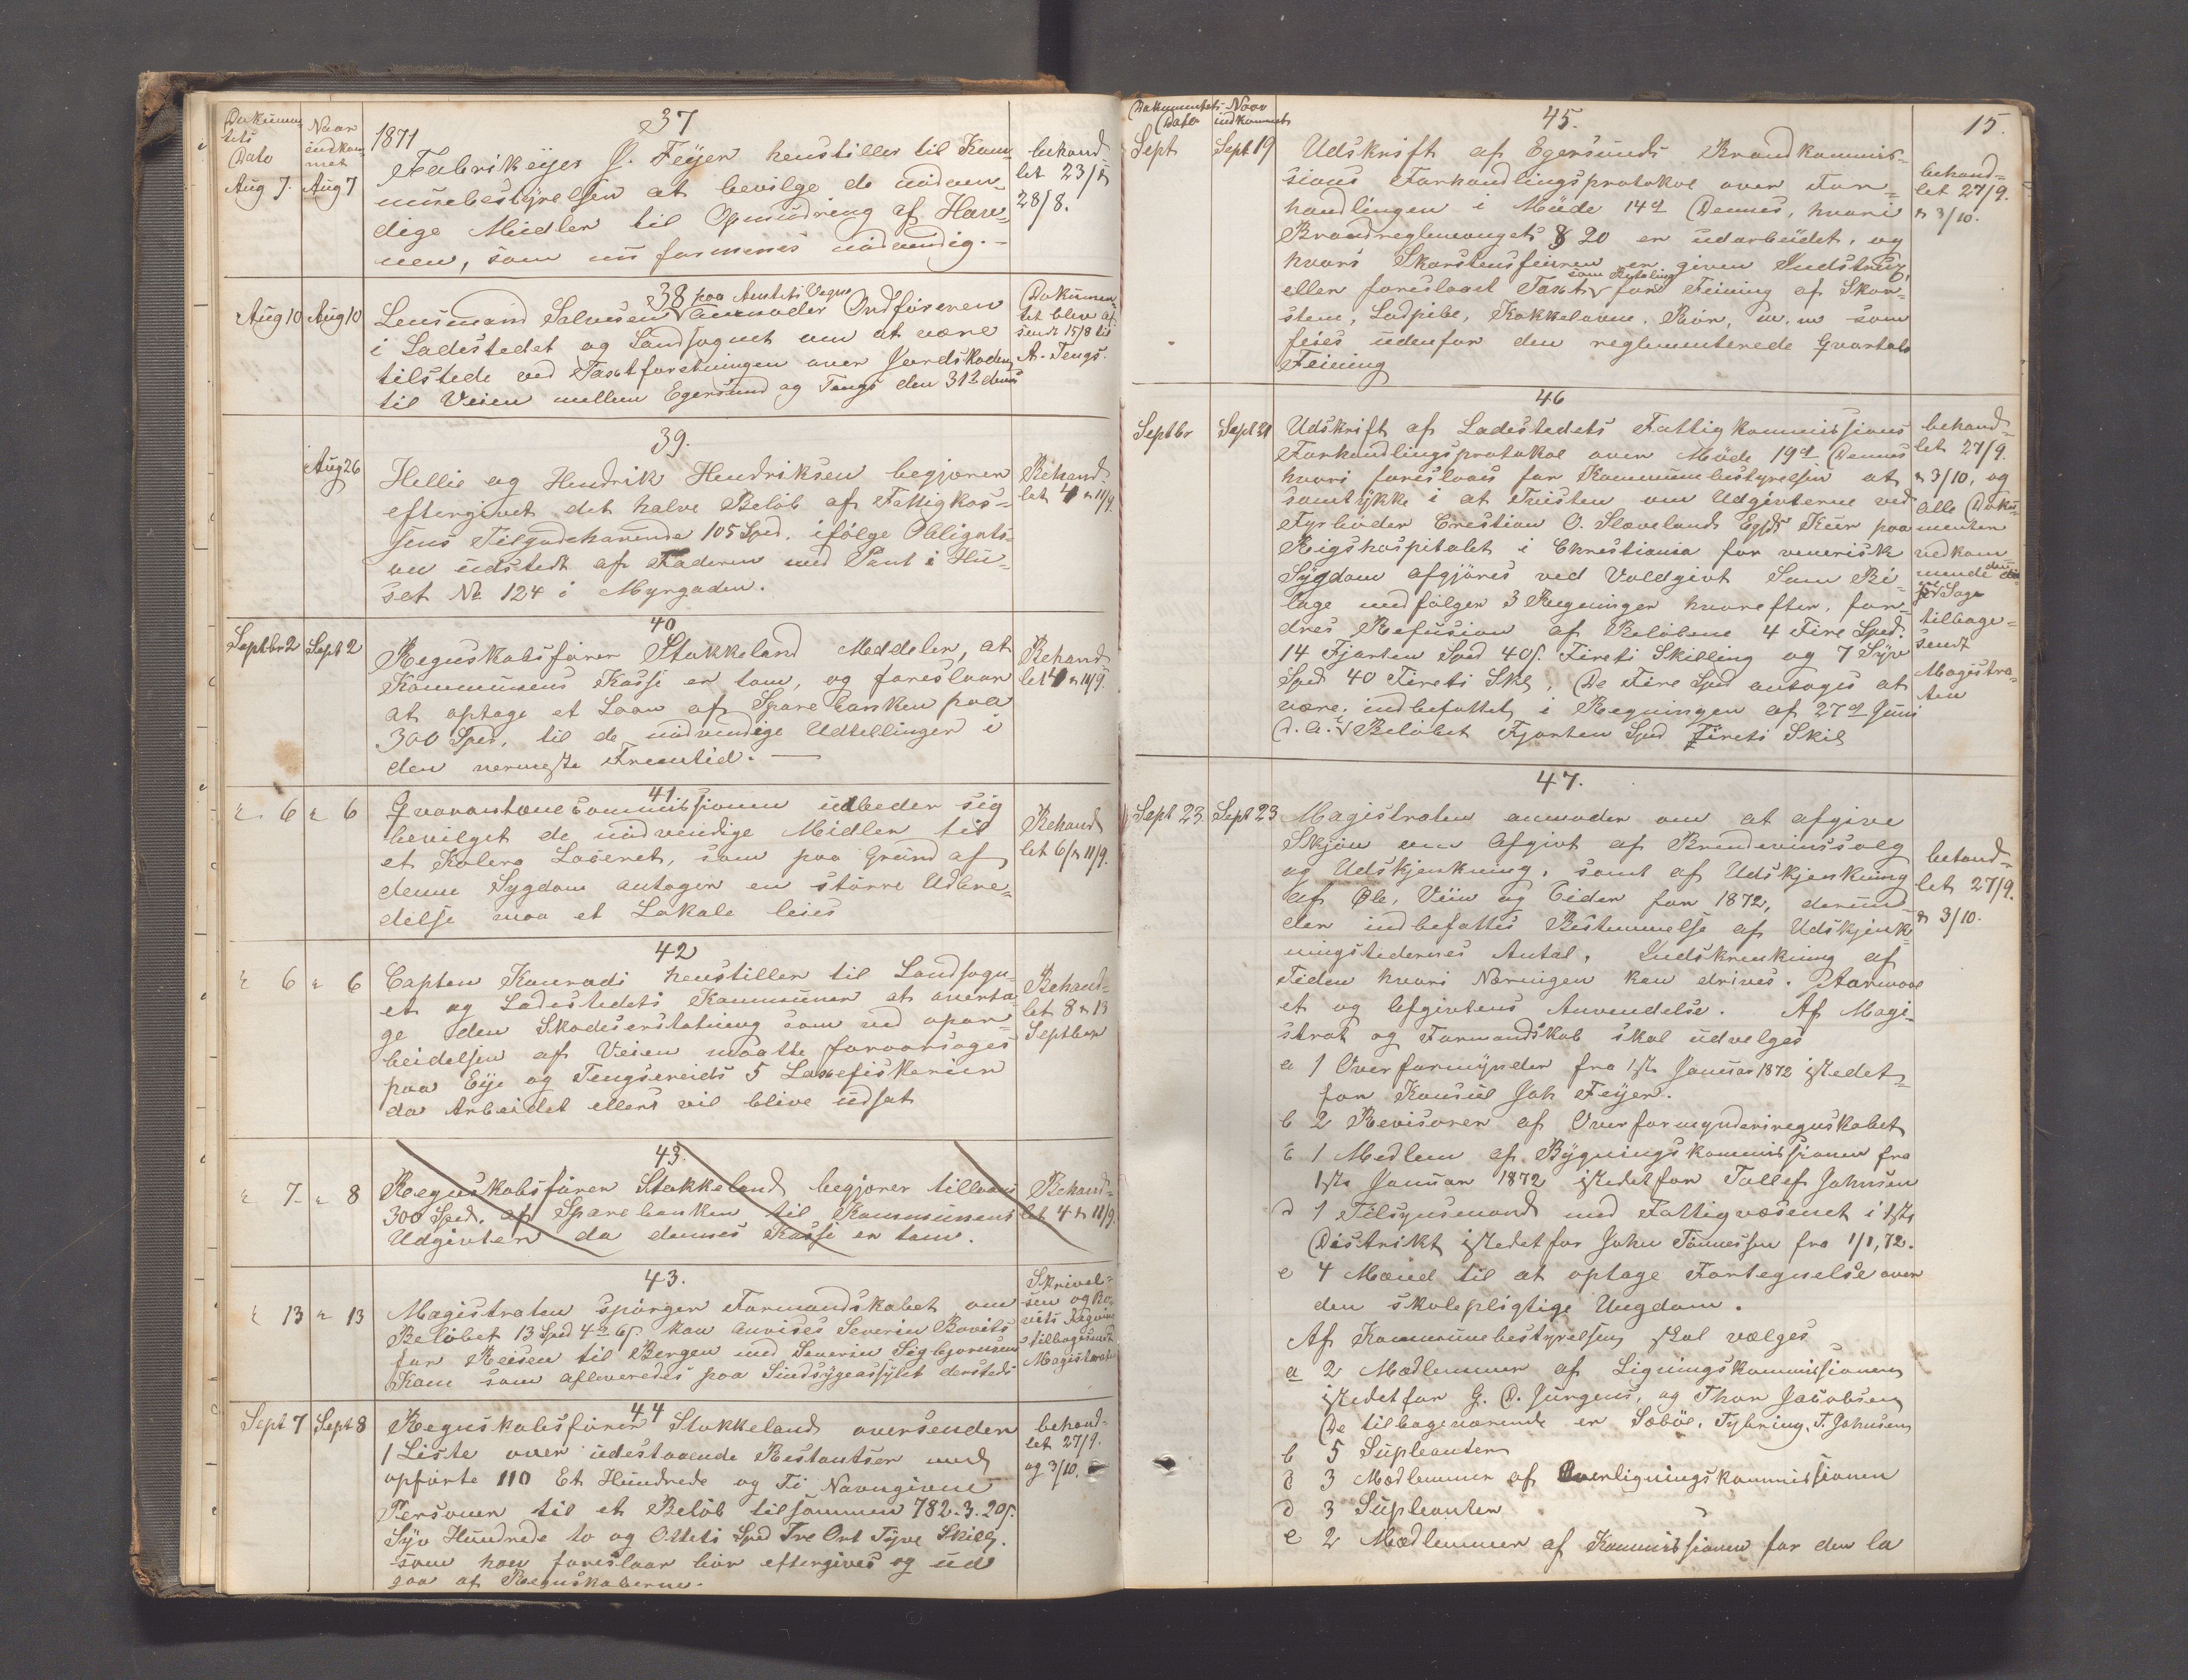 Dokumen-
tets
Dato
Naar
indkom-
met
1871
37
Aug 7. Aug 7
Fabrikeyer J. Feyer henstiller til Kom-
munebestyrelsen at bevilge de nödven-
dige Midler til Opmudring af Hav-
nen, som nu formenes nödvendig.-
behand-
let 23/8
28/8.
38
Aug 10 Aug 10
Lensmand Salvesen paa Amtets Vegne anmoder Ordföreren
i Ladestedet og Landsognet om at være
tilstede ved Taxtforretningen over Jordskaden
til Veien mellem Egersund og Tengs den 31te dennes
Dokumen-
tet blev af
sendt 15/8 til
A. Tengs.
39.
Aug 26
Hellie og Hendrik Hendriksen begjærer
eftergivet det halve Belöb af Fattigkas-
sens Tilgodehavende 105 Spd. ifölge Obligati-
on udstedt af Faderen med Pant i Hu-
set No 124 i Myrgaden.
Behand-
let 4 & 11/9.
40
Septbr 2 Sept 2
Regnskabsförer Stokkeland Meddeler, at
Kommunens Kasse er tom, og foreslaar
at optage et Laan af Sparebanken paa
300 Spd. til de nödvendige Udtellinger i
den nermeste Fremtid.
Behand
let 4 & 11/9.
41.
6 6
Qvarantænecommissionen udbeder sig
bevilget de nödvendige Midler til
et Kolera Lazeret, som paa Grund af
denne Sygdom antager en större Udbre-
delse maa et Lokale leies
Behand
let 6/ & 11/9.
42
6 6
Capten Konradi henstiller til Landsogn-
et og Ladestedets Kommuner at overta-
ge den Skadserstatning som ved opar-
beidelsen af Veien maatte foraarsages
paa Eije og Tengsereids 5 Laxefiskerier
da Arbeidet ellers vil blive udsat
Behand-
let 8 & 13
Septber
43.
7 8
Regnskabsförer Stokkeland begjærer tillaans
300 Spd. af Sparebanken til Kommunens
Udgivter da dennes Kasse er tom.
Behand-
let 4 & 11/9.
43.
13 13
Magistraten spörger Formandskabet om
Belöbet 13 Spd 4 6s. kan anvises Severin Bovits
for Reisen til Bergen med Severin Sigbjørnsens
Kone som afleveredes paa Sindsygeassylet dersteds
Skrivel-
sen og Bo-
vits Regning
tilbagesendt
Magistraten
44
Sept 7 Sept 8
Regnskabsförer Stokkeland oversender
1 Liste over udestaaende Restantser med
opförte 110 Et Hundrede og Ti Navngivne
Personer til et Belöb tilsammen 782-3-20s.
Syv Hundrede to og Otteti Spd Tre Ort Tyve Skillg.
som han foreslaar bör eftergives og ud
gaa af Regnskaberne.
behand-
let 27/9.
og 3/10.
Dokumentets
Dato
Naar
indkommet
15.
45.
Sept Sept 19
Udskrift af Egersunds Brandkommis-
sions Forhandlingsprotokol over For-
handlingen i Möde 14de Dennes, hvori
Brandreglementets § 20 er udarbeidet, og
hvori Skorstensfeieren er given Indstrux
eller foreslaaet Taxt som Betaling for Feining af Skor-
sten, Ladpibe, Kakkelovne, Rör, m.m som
feies udenfor den reglementerede Qvartals
Feining
behand-
let 27/9.
& 3/10.
46
Septbr Sept 21
Udskrift af Ladestedets Fattigkommissions
Forhandlingsprotokol over Möde 19de Dennes
hvori foreslaaes for Kommunebestyrelsen at
samtykke i at Tvisten om Udgivterne ved
Fyrböder Crestian O. Slævelands Kur paa
Rigshospitalet i Christiania for venerisk
Sygdom afgjöres ved Voldgivt Som Bi-
lage medfölger 3 Regninger hvorefter, for-
dres Refusion af Belöbene 4 Fire Spd.
14 Fjorten Spd 40s. Fireti Skilling og 7 Syv
Spd 40 Fireti Skl. De Fire Spd antages at
være indbefattet i Regningen af 27de Juni
d. A. Belöbet Fjorten Spd Fireti Skil
behand-
let 27/9.
& 3/10, og
alle Doku-
menter
vedkom
mende denne
Sag
tilbage-
sendt
Magistra-
ten
47.
Sept 23. Sept 23
Magistraten anmoder om at afgive
Skjön om Afgivt af Brændevinssalg
og Udskjenkning, samt af Udskjenkning
af Øl, Viin og Cider for 1872, derun-
der indbefattes Bestemmelse af Udskjenk-
ningstedernes Antal, Indskrenkning af
Tiden hvori Næringen kan drives.
et og Afgivtens Anvendelse. Af Magi-
strat og Formandskab skal udvelges
a 1 Overformynder fra 1ste Januar 1872 istedet
for Konsul Joh Feyer.
b 2 Revisorer af Overformynderiregnskabet
c 1 Medlem af Bygningskommissionen fra
1ste Januar 1872 istedetfor Tollef Johnsen
d 1 Tilsynsmand med Fattigvæsenet i 1ste
Distrikt istedetfor John Tönnessen fra 1/1, 72.
e 4 Mænd til at optage Fortegnelse over
den skolepligtige Ungdom.
Af Kommunebestyrelsen skal vælges
a 2 Medlemmer af Ligningskommissionen
istedetfor G. D. Jürgens, og Thor Jacobsen
De tilbageværende er Seböe, Tyhring, T. Johnsen
b 5 Supleanter
c 3 Medlemmer af Overligningskommissionen
d 3 Supleanter
e 2 Medlemmer af Kommissionen for den la
behand-
let 27/9.
& 3/10.